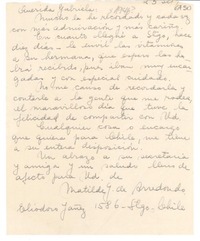 Querida Gabriela:
Mucho la he recordado y cada vez
con más admiración y más cariño.
En cuanto llegué a Stgo, hace
diez días, le envié las vitaminas
a su hermana, que espero las ha-
brá recibido, pues iban muy
y con especial cuidado.
No me canso de recordarla y
contarle a la gente que me rodea,
el maravilloso que tuve la
felicidad de compartir con Ud.
Cualquier cosa o encargo
que quiera para Chile, me tiene a
su entera disposición.
Un abrazo a su secretaria
y amiga y un saludo lleno de
afecto para Ud, de
Matilde J. de Arredondo
Eliodoro Yáñez 1586 - Stgo. Chile